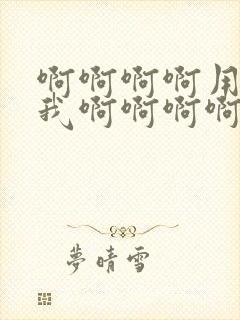 啊啊啊啊用
我啊啊啊啊
夢晴雪